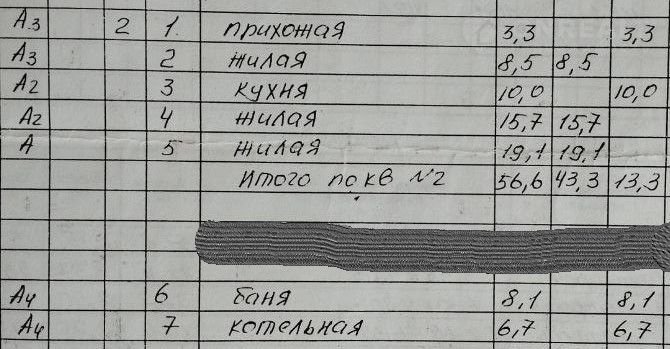 А3 2 1 прихожая 3,3 3,3
А3 2 жилая 8,5 8,5
А2 3 кухня 10,0 10,0
А2 4 жилая 15,7 15,7
А 5 жилая 19,1 19,1
Итого по кв №2 56,6 43,3 13,3
А4 6 баня 8,1 8,1
А4 7 котельная 6,7 6,7